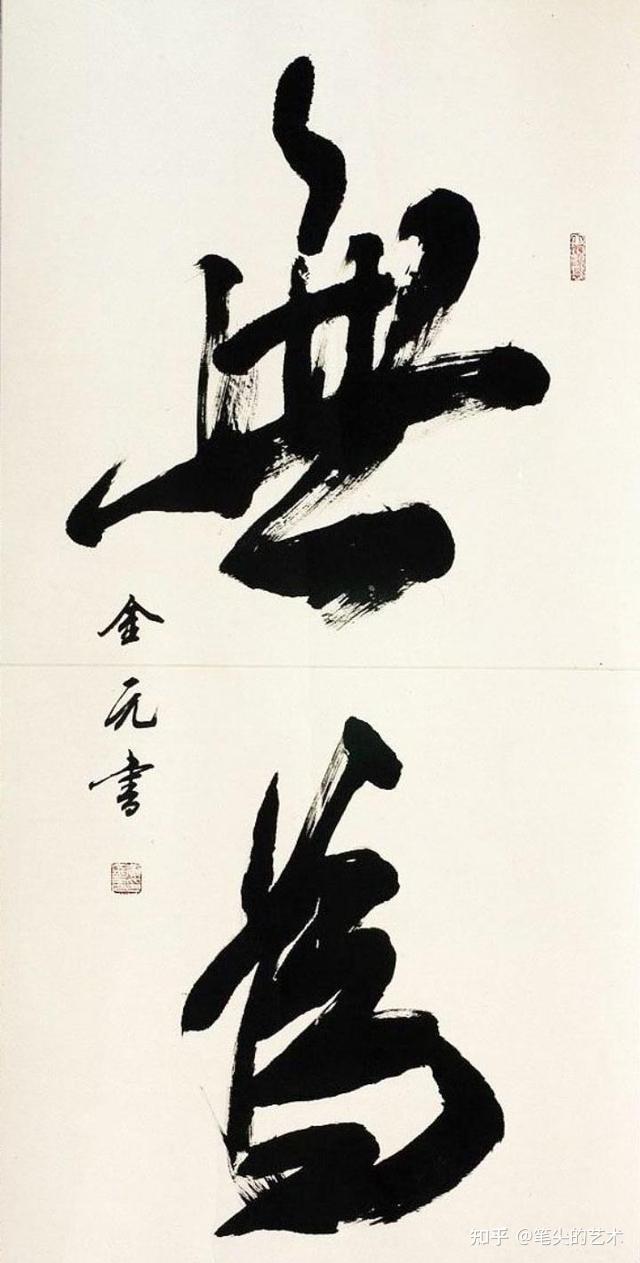 無為
金元書
知乎 @笔头的艺术